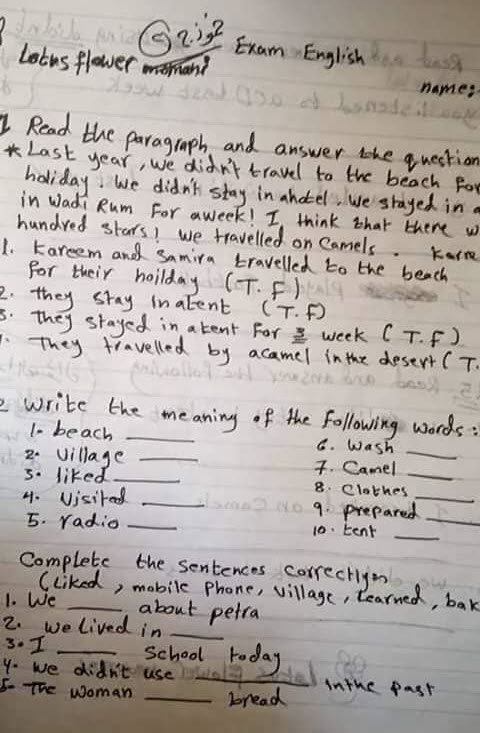 Exam English
Lotus flower
name:
Read the paragraph and answer the question
* Last year, we didn't travel to the beach For
holiday. We didn't stay in ahotel. We stayed in a
in Wadi Rum For aweek! I think that there w
hundred stars! We travelled on Camels. Karee
1. Kareem and Samira travelled to the beach
for their hoilday (T. F)
2. they stay in atent (T. F)
3. they stayed in a tent for 3 week (T. F)
4. They travelled by acamel in the desert (T.
2 Write the meaning of the following words:
1- beach ____
2. village ____
3. liked ____
4. Visited ____
5. radio ____
6. Wash ____
7. Camel ____
8. Clothes ____
9. prepared ____
10. tent ____
Complete the sentences correctly
(Liked, mobile Phone, village, learned, bak
1. We ____ about petra
2. we lived in ____
3. I ____ School today
4. we didn't use ____ in the past
5- The woman ____ bread